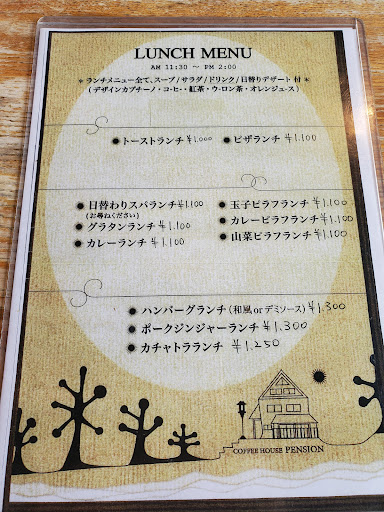 LUNCH MENU
AM 11:30 ～ PM 2:00
＊ランチメニュー全て、スープ/サラダ/ドリンク/日替りデザート 付＊
(デザインカプチーノ・コーヒー・紅茶・ウーロン茶・オレンジュース)
トーストランチ ¥1.000 ピザランチ ¥1.100
日替わりスパランチ ¥1.100 玉子ピラフランチ ¥1.100
(お尋ねください)
グラタンランチ ¥1.100 カレーピラフランチ ¥1.100
カレーランチ ¥1.100 山菜ピラフランチ ¥1.100
ハンバーグランチ (和風 or デミソース) ¥1.300
ポークジンジャーランチ ¥1.300
カチャトラランチ ¥1.250
COFFEE HOUSE PENSION